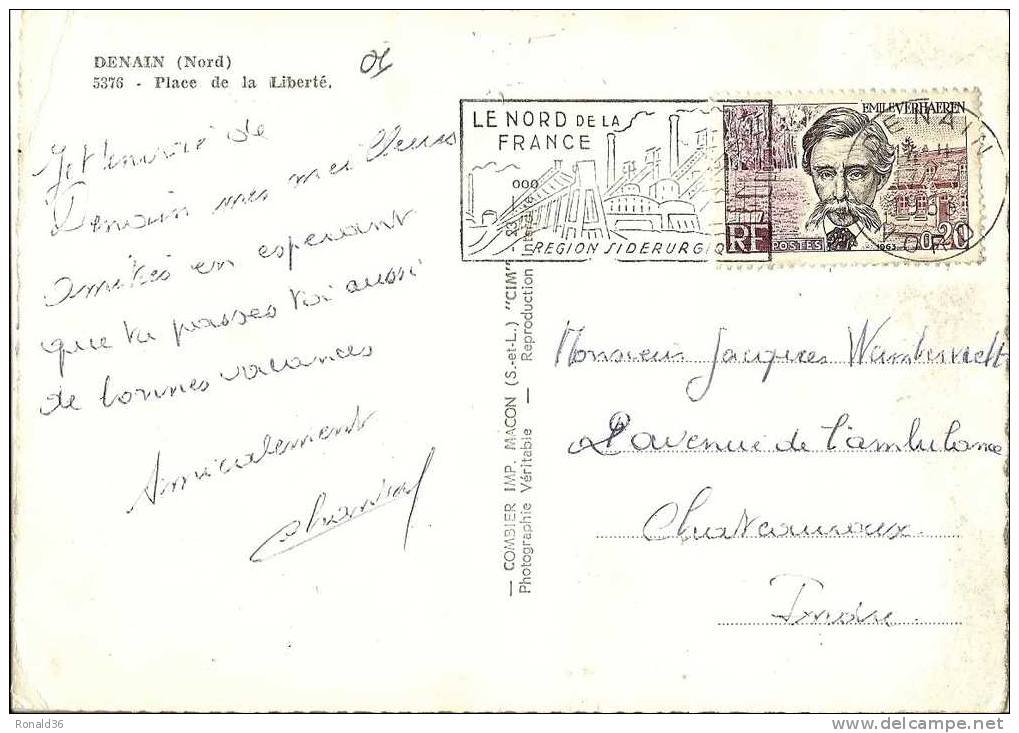 DENAIN (Nord)
5376 - Place de la Liberté.
Je t'envoie de
Denain mes meilleurs
amitiés en espérant
que tu passes toi aussi
de bonnes vacances
Amicalement
LE NORD DE LA
FRANCE
REGION SIDERURGIQ
EMILE VERHAEREN
RF
POSTES
1963
0,20
DENAIN
NORD
— COMBIER IMP. MACON (S.-et-L.) "CIM"
Photographie Véritable — Reproduction Interdite
Monsieur Jacques
avenue de l'ambulance
Chateauroux
Indre
Ronald36
delcampe.net